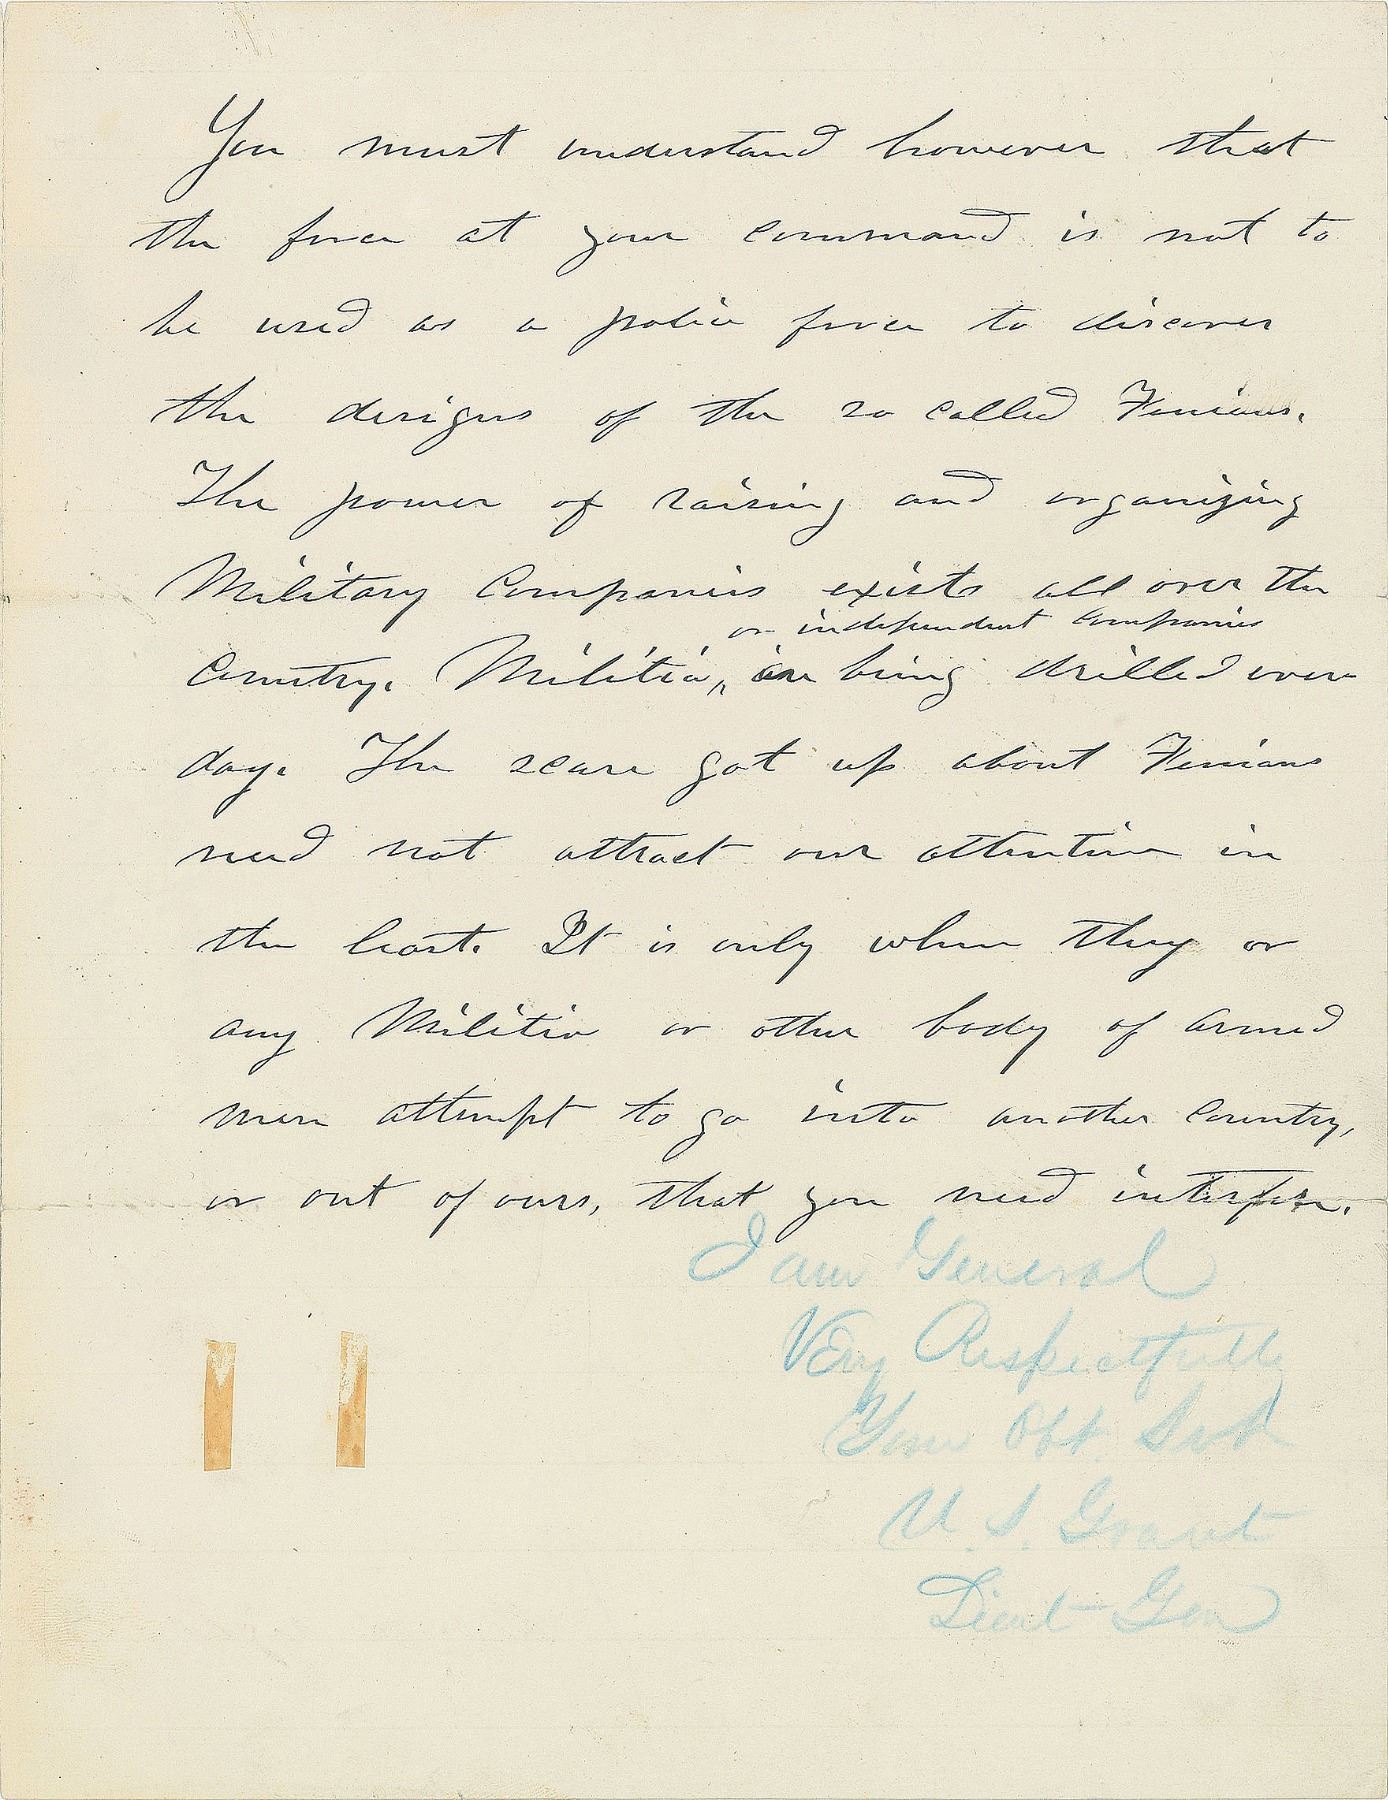 You must understand however that
the force at your command is not to
be used as a police force to discover
the designs of the so called Fenians.
The power of raising and organizing
Military Companies exists all over the
or independent companies
country. Militia, are being drilled every
day. The scare got up about Fenians
need not attract our attention in
the least. It is only when they or
any Militia or other body of armed
men attempt to go into another country,
or out of ours, that you need interfere.
I am General
Very Respectfully
Your Obt. Svt
U. S. Grant
Lieut Gen